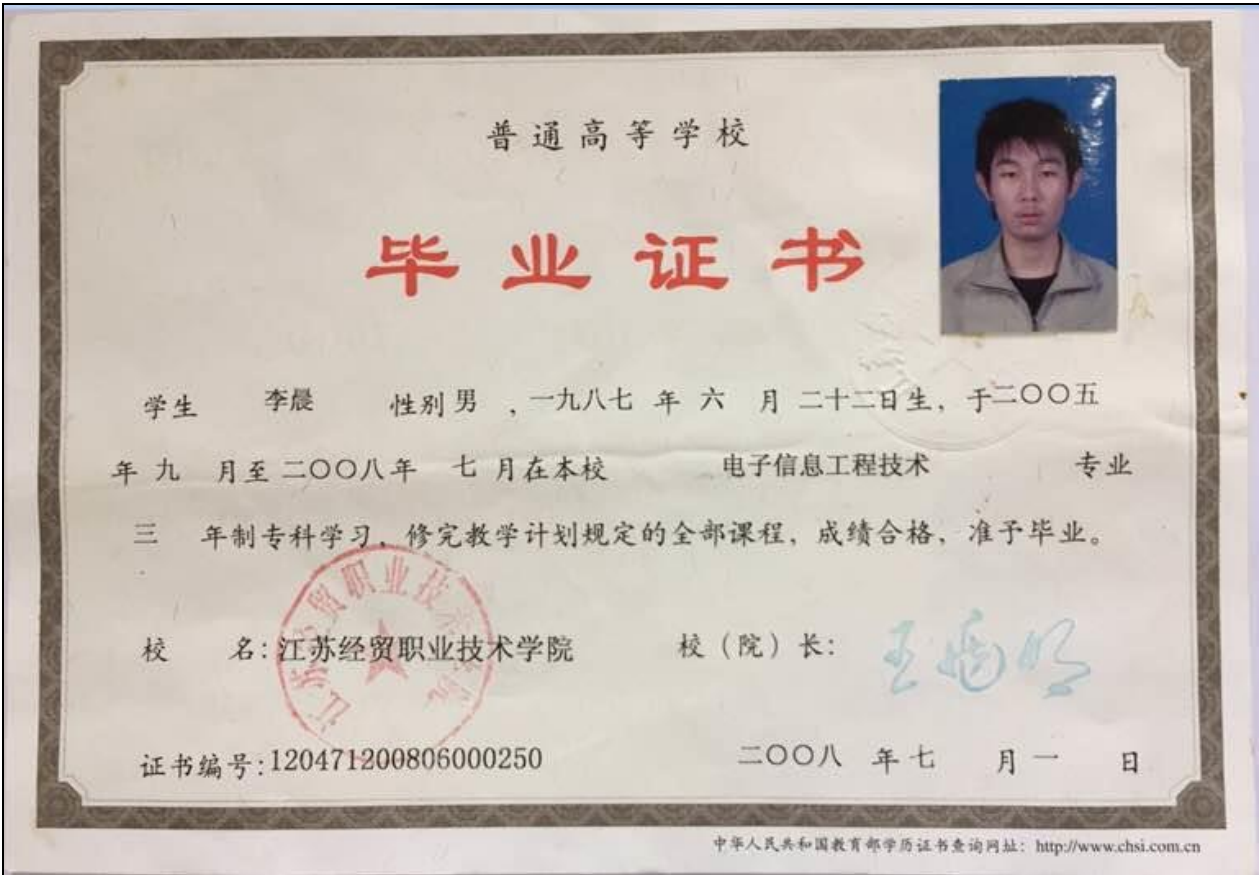 普通高等学校
毕业证书
学生 李晨 性别 男 ，一九八七 年 六 月 二十二日生，于二〇〇五
年 九 月至 二〇〇八年 七 月在本校 电子信息工程技术 专业
三 年制专科学习，修完教学计划规定的全部课程，成绩合格，准予毕业。
江苏经贸职业技术学院
校 名：江苏经贸职业技术学院 校（院）长：
证书编号：120471200806000250 二〇〇八 年 七 月 一 日
中华人民共和国教育部学历证书查询网址：http://www.chsi.com.cn